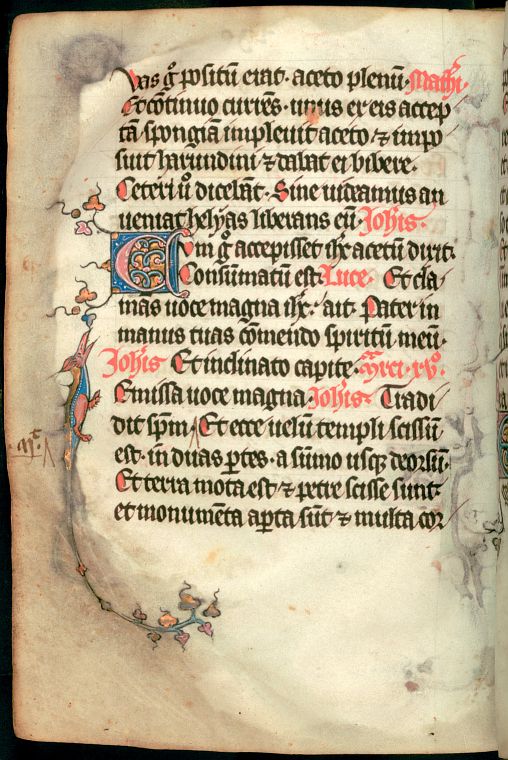 Vas g̊ positū erat· aceto plenū· Mathi·
Et cōtinuo currēs· unus ex eis accep
tā spongiā impleuit aceto ⁊ impo
suit harundini ⁊ dabat ei bibere·
Ceteri ů dicebāt· Sine uideamus an
ueniat helyas liberans eū· Joħis·
Cum g̊ accepisset ihc acetū dixit·
Consūmatū est· Luce· Et cla
mās uoce magna ihc· ait· Pater in
manus tuas cōmendo spiritū meū·
Joħis Et inclinato capite· Mrci· xvº·
Emissa uoce magna· Joħis· Tradi
dit sp̄m· Et ecce uelū templi scissū
est· in duas ꝑtes· a sūmo usqꝫ deorsū·
Et terra mota est· ⁊ petre scisse sunt·
et monumēta aꝑta sūt ⁊ multa cor